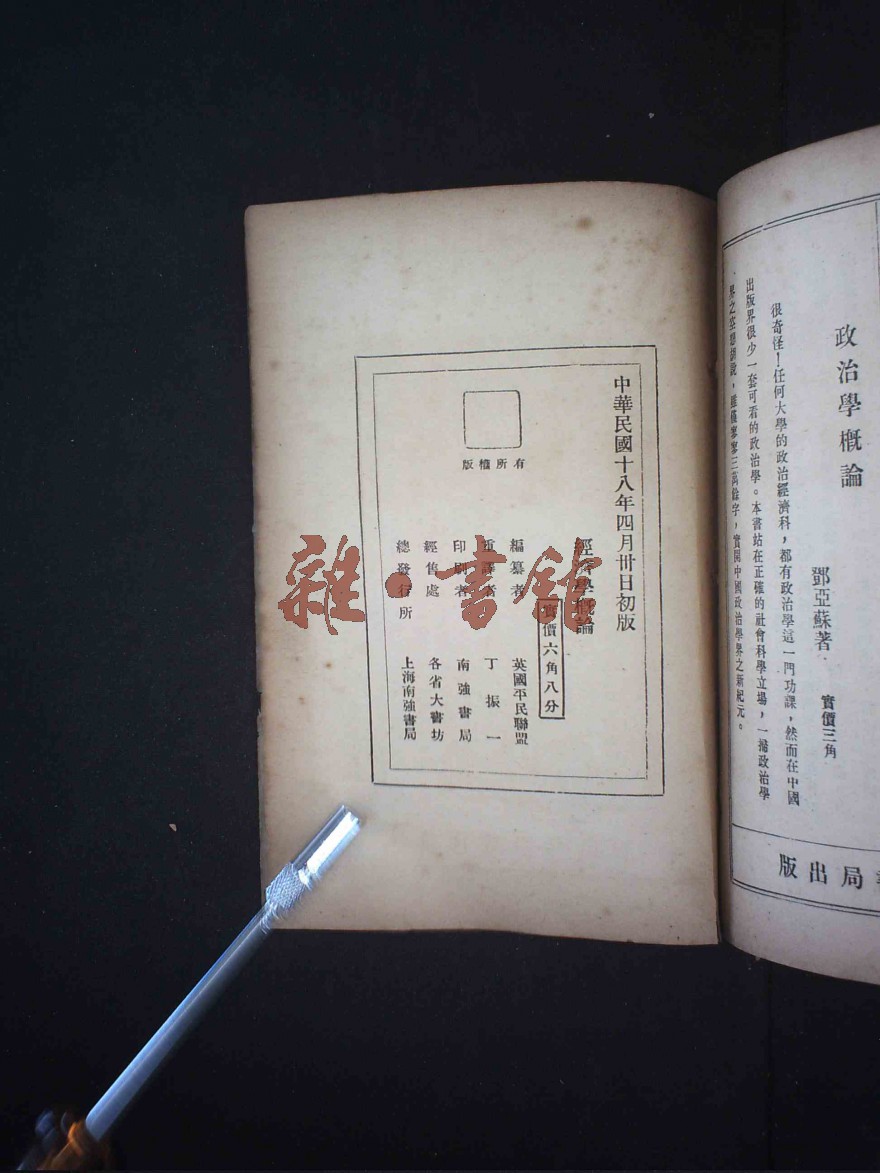 政治學概論
鄧亞蘇著 實價三角
很奇怪！任何大學的政治經濟科，都有政治學這一門功課，然而在中國
出版界很少一套可看的政治學。本書站在正確的社會科學立場，一掃政治學
界之空想胡說，雖僅寥寥三萬餘字，實開中國政治學界之新紀元。
局出版
中華民國十八年四月卅日初版
經濟學概論
實價六角八分
編纂者 英國平民聯盟
重譯者 丁振一
印刷者 南強書局
經售處 各省大書坊
總發行所 上海南強書局
版權所有
雜·書館